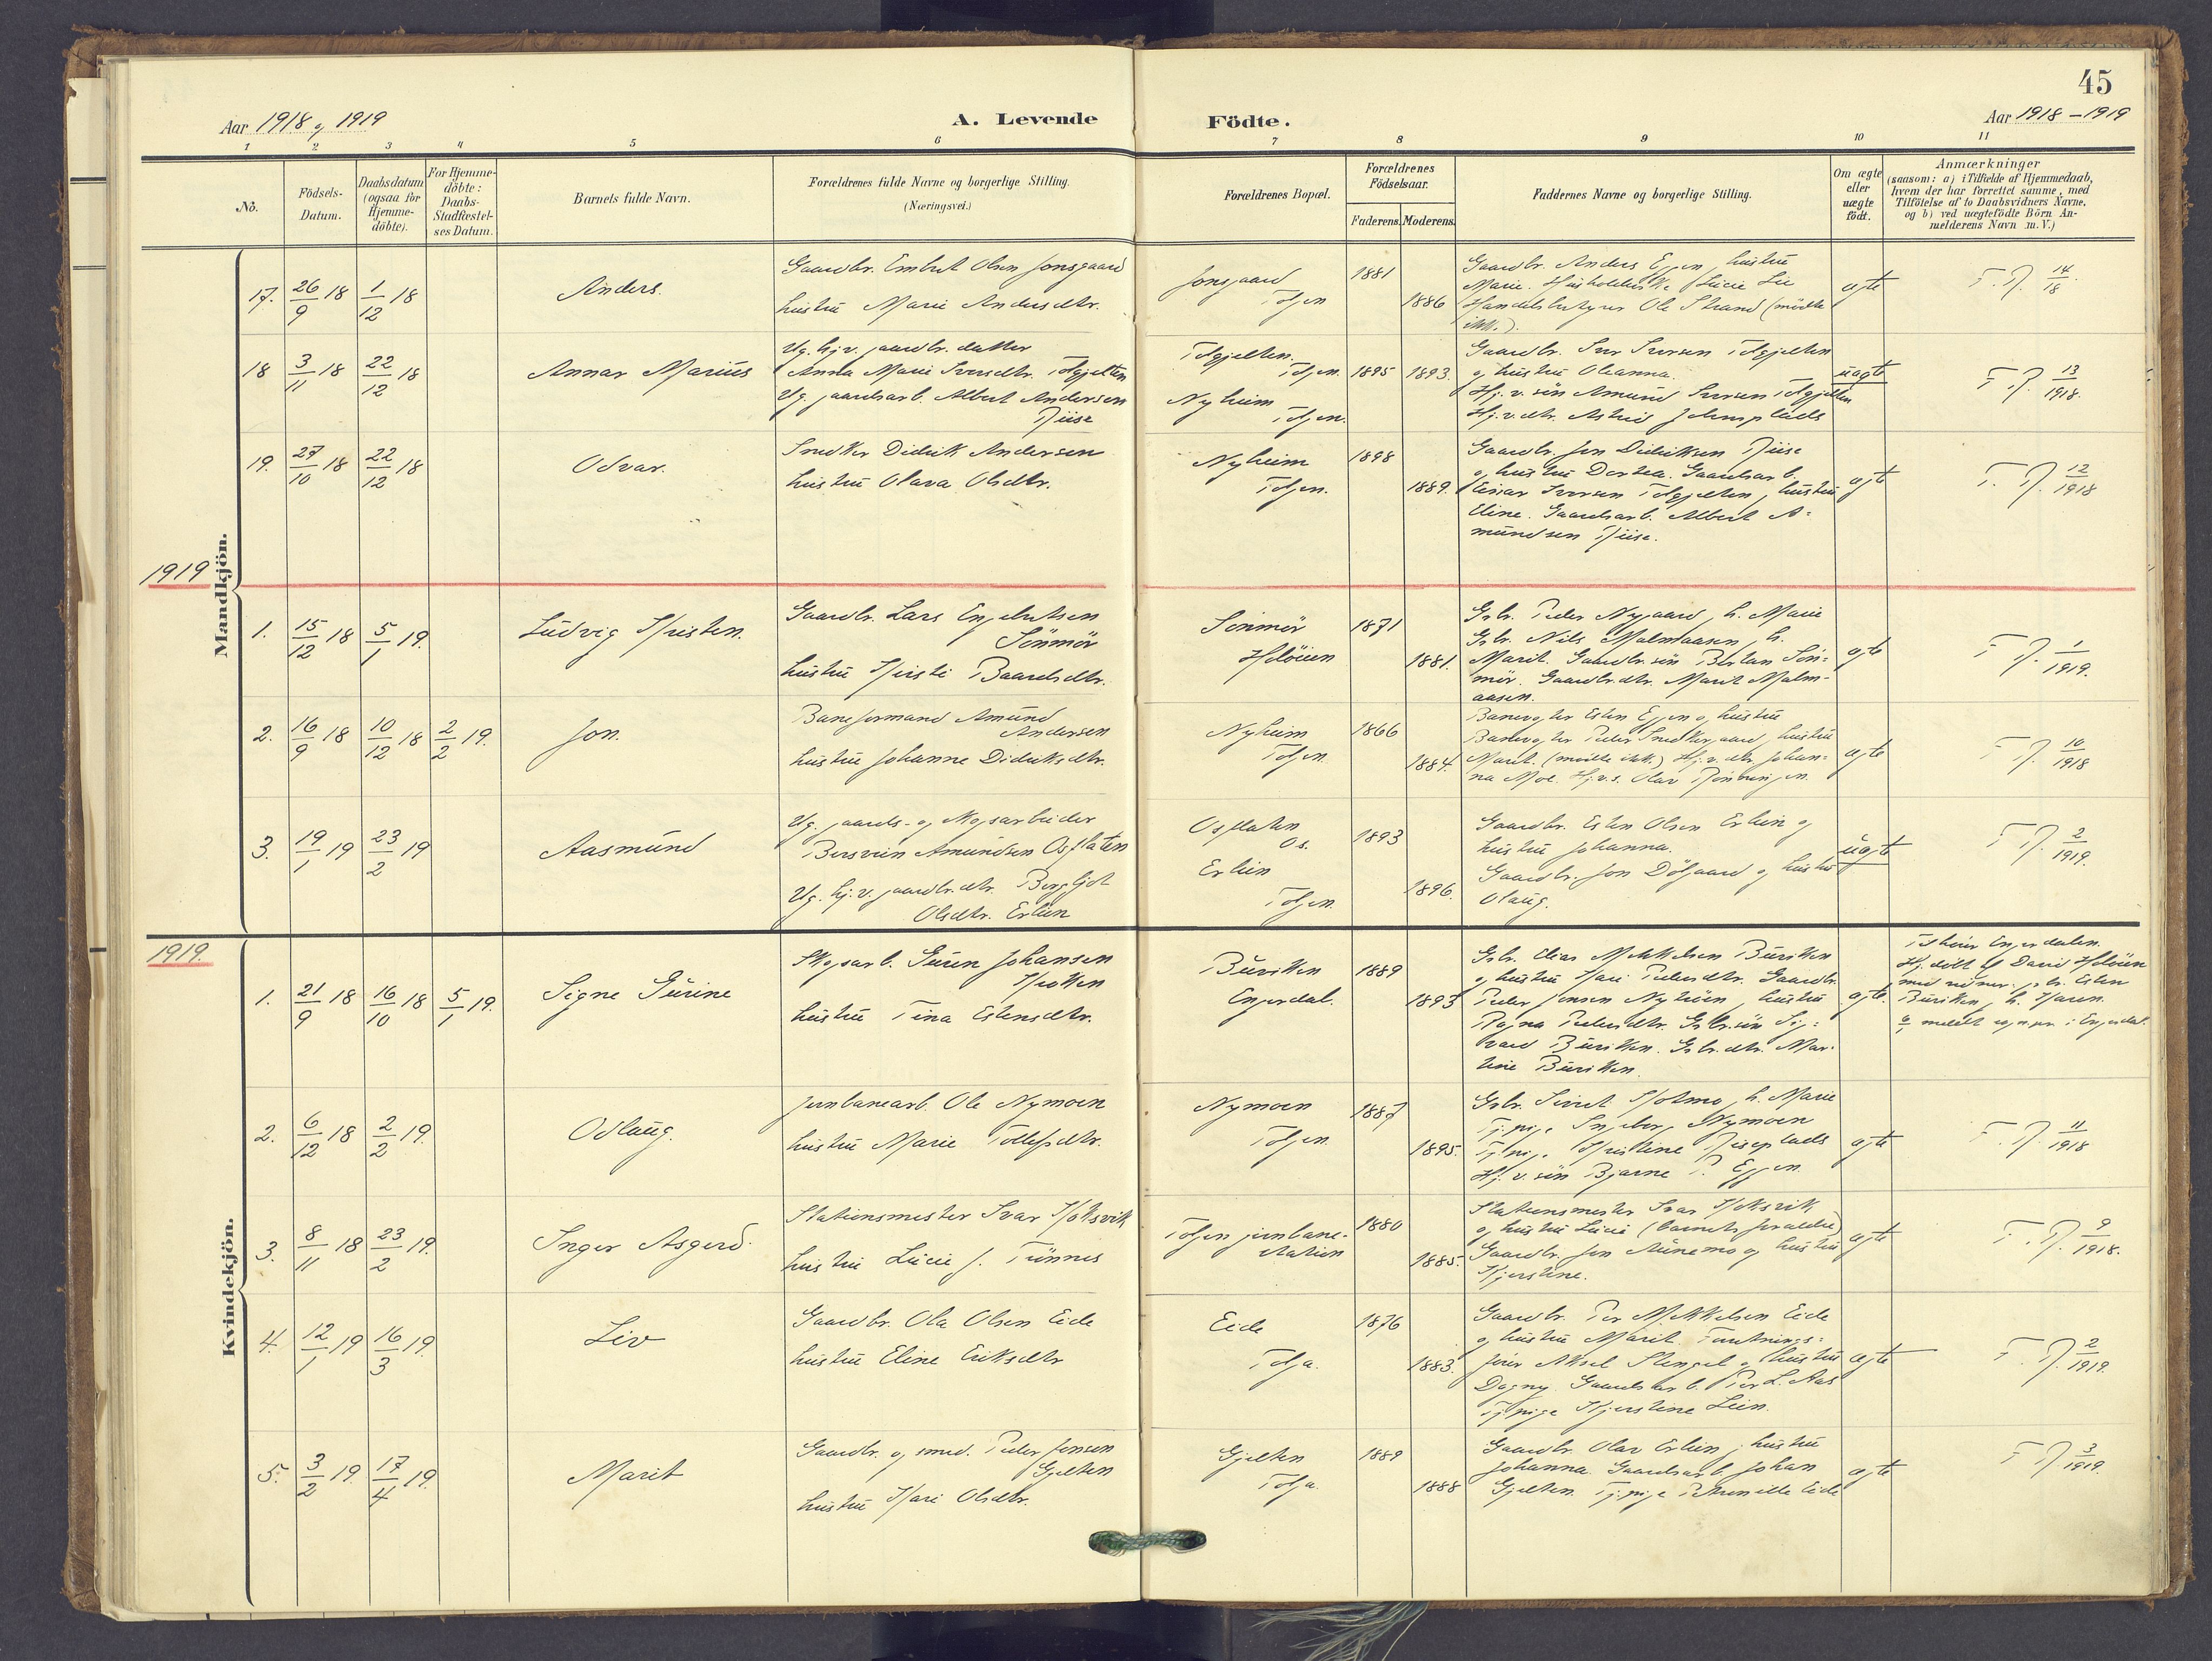 45
Aar 1918 og 1919
A. Levende Födte.
Aar 1918-1919
1 2 3 4 5 6 7 8 9 10 11
No.
Födsels-
Datum.
Daabsdatum
(ogsaa for
Hjemme-
döbte).
For Hjemme-
döbte:
Daabs-
Stadfæstel-
ses Datum.
Barnets fulde Navn.
Forældrenes fulde Navne og borgerlige Stilling.
(Næringsvei.)
Forældrenes Bopæl.
Forældrenes
Födselsaar.
Faderens. Moderens.
Faddernes Navne og borgerlige Stilling.
Om ægte
eller
uægte
födt.
Anmærkninger
(saasom: a) i Tilfælde af Hjemmedaab,
hvem der har forrettet samme, med
Tilföielse af to Daabsvidners Navne,
og b) ved uægtefödte Börn An-
melderens Navn m. V.)
Mandkjön.
17. 26/9 18 1/12 18
Anders.
Gaardbr. Embret Olsen Jonsgaard
hustru Marie Andersdtr.
Jonsgaard
Tolgen
1881
1886
Gaardbr. Anders Eggen, hustru
Marie. Husholderske Lucie Lie
Handelsbestyrer Ole Strand (mødte
ikke).
ægte
F. P. 14/18
18 3/11 18 22/12 18
Annar Marius
Ug. hj.v. gaardbr. datter
Anna Marie Iversdtr. Tolgjelten
Ug. gaardsarb. Albert Andersen
Riise
Tolgjelten.
Tolgen.
Nyheim
Tolgen.
1895 1893.
Gaardbr. Iver Iversen Tolgjelten
og hustru Oleanna.
Hj. v. sön Amund Iversen Tolgjelten
Hj. v. dtr. Astrid
uægte
F. P. 13/1918.
19. 27/10 18 22/12 18
Odvar.
Snedker Didrik Andersen
hustru Olava Olsdtr.
Nyheim
Tolgen.
1898
1889.
Gaardbr. Jon Didriksen Riise
og hustru Dortea. Gaardsarb.
Einar Iversen Tolgjelten, hustru
Eline. Gaardsarb. Albert A-
mundsen Riise.
ægte
F. P. 12/1918
1919
1. 15/12 18 5/1 19.
Ludvig Kristen.
Gaardbr. Lars Engebretsen
Sönmör
hustru Kirsti Baardsdtr.
Sönmör
Hodöien
1871
1881.
Gsbr. Peder Nygaard, h. Marie
Gbr. Nils Malmaasen, h.
Marit. Gaardbr.sön Bertan Sön-
mör. Gaardbr.dtr. Marit Malm-
aasen.
ægte
F. P. 1/1919.
2. 16/9 18 10/12 18 2/2 19.
Jon.
Baneformand Amund
Andersen
hustru Johanne Didriksdtr.
Nyheim
Tolgen
1866
1884.
Banevogter Esten Eggen og hustru
Banevogter Peder Snedkergaard, hustru
Marit. (mødte ikke) Hj. v. dtr. Johan-
na Moe. Hj.v.s. Olav
ægte
F. P. 10/1918
3. 19/1 19 23/2 19
Aasmund
Ug. gaards- og skogsarbeider
Bersvein Amundsen Osflaten
Ug. hj. v. gaardbr.dtr. Bergljot
Olsdtr. Erlien
Osflaten
Os.
Erlien
Tolgen.
1893
1896.
Gaardbr. Esten Olsen Erlien og
hustru Johanna.
Gaardbr. Jon Dölgaard og hustru
Olaug.
uægte
F. P. 2/1919.
1919.
Kvindekjön.
1. 21/9 18 16/10 18 5/1 19.
Signe Gurine
Skogsarb. Guren Johansen
Kroken
hustru Tina Estensdtr.
Buriken
Engerdal.
1889
1893
Gsbr. Elias Mikkelsen Buriken
og hustru Kari Pedersdtr. Gaardbr.
Peder Jonsen Nyhöen, hustru
Ragna Pedersdtr. Gbr.sön Sig-
vard Buriken. Gbr.dtr. Mar-
tine Buriken.
ægte.
Tilhörer Engerdalen.
Hj. döbt af David Hodöien
med vidner: gbr. Esten
Buriken, h. Karen.
meldt sogn.pr. i Engerdal.
2. 6/12 18 2/2 19.
Odlaug.
Jernbanearb. Ole Nymoen
hustru Marie Tollefsdtr.
Nymoen
Tolgen.
1887
1895.
Gsbr. Sivert Kotmo, h. Marie
Tj.pige Ingeborg Nymoen
Tj.pige Kristine
Hj. v. sön Bjarne P. Eggen.
ægte
F. P. 11/1918
3. 8/11 18 23/2 19.
Inger Asgerd.
Stationsmester Ivar Höksvik
hustru Lucie f. Tönnes
Tolgen jernbane-
station
1880
1885.
Stationsmester Ivar Höksvik
og hustru Lucie (barnets forældre)
Gaardbr. Jon Aunemo og hustru
Kjerstine.
ægte
F. P. 9/1918.
4. 12/1 19 16/3 19.
Liv
Gaardbr. Ola Olsen Eide
hustru Eline Eriksdtr
Eide
Tolga.
1876
1883.
Gaardbr. Per Mikkelsen Eide
og hustru Marit. Forretnings-
förer Aksel Stengel og hustru
Dagny. Gaardsarb. Per L. Aas
Tj.pige Kjerstine Lien.
ægte
F. P. 2/1919.
5. 3/2 19. 17/4 19.
Marit
Gaardbr. og smed. Peder Jonsen
Gjelten
hustru Kari Olsdtr.
Gjelten
Tolga.
1889
1888
Gaardbr. Olav Erlien, hustru
Johanna. Gaardsarb. Johan
Gjelten. Tj.pige Petronille Eide
ægte
F. P. 3/1919.